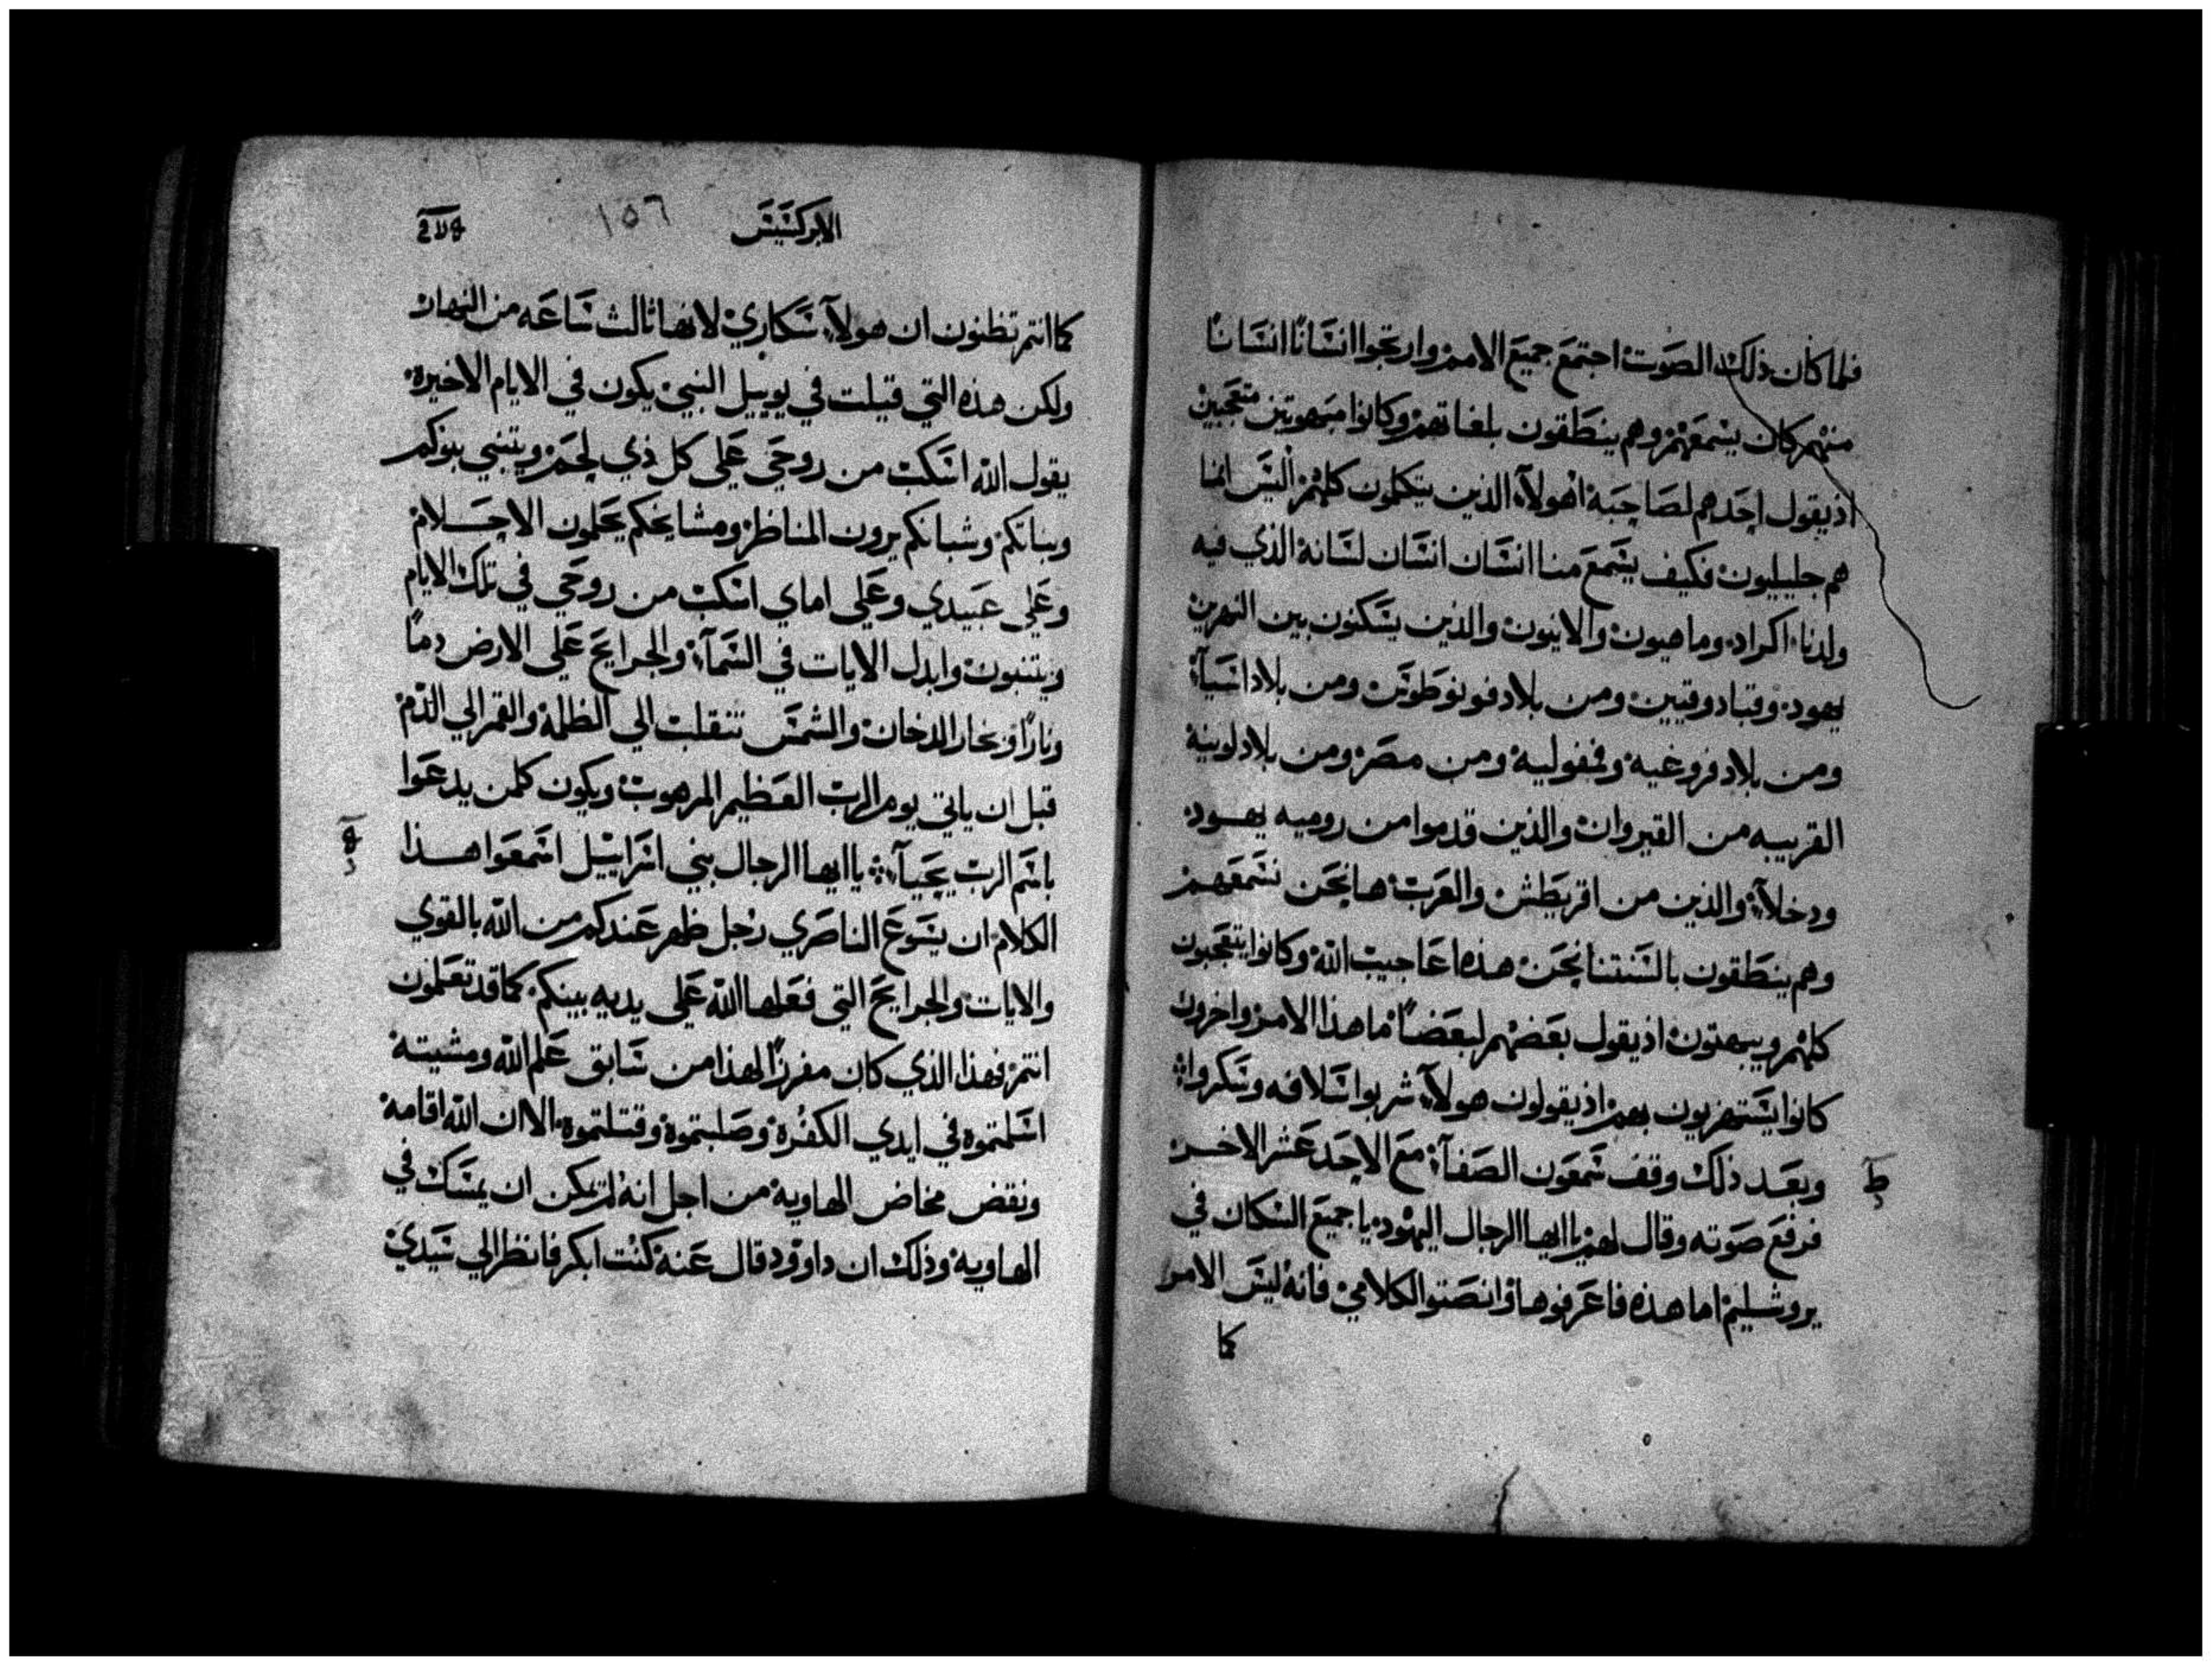 فلما كان ذلك الصوت اجتمع جميع الامم وارتجوا انسانا انسانا
منهم كان يسمعهم وهم ينطقون بلغاتهم وكانوا مبهوتين متعجبين
اذ يقول احدهم لصاحبه اهولاء الذين يتكلمون كلهم اليس انما
هم جليليون فكيف يسمع منا انسان انسان لسانه الذي فيه
ولدنا اكراد وماهيون والانيون والذين يسكنون بين النهرين
يهود وقبادوقيين ومن بلاد فونوطوس ومن بلاد اسيا
ومن بلاد فروغيه وفمفوليه ومن مصر ومن بلاد لوبيه
القريبه من القيروان والذين قدموا من روميه يهود
ودخلاء والذين من اقريطش والعرب ها نحن نسمعهم
وهم ينطقون بالسنتنا نحن هذه اعاجيب الله وكانوا يتعجبون
كلهم ويبهتون اذ يقول بعضهم لبعضا ما هذا الامر واخرون
كانوا يستهزيون بهم اذ يقولون هولاء شربوا سلافه وسكروا
وبعد ذلك وقف شمعون الصفا مع الاحد عشر الاخر
فرفع صوته وقال لهم يا ايها الرجال اليهود يا جميع السكان في
يروشليم اما هذه فاعرفوها وانصتوا لكلامي فانه ليس الامر
كما
الابركسيس ١٥٦
كما انتم تظنون ان هولاء سكاري لانها ثالث ساعه من النهار
ولكن هذه التي قيلت في يوييل النبي يكون في الايام الاخيره
يقول الله اسكب من روحي علي كل ذي لحم ويتنبي بنوكم
وبناتكم وشبانكم يرون المناظر ومشايخكم يحلمون الاحلام
وعلي عبيدي وعلي اماي اسكب من روحي في تلك الايام
ويتنبون وابدل الايات في السماء والجرايح علي الارض دما
ونارا وبخار الدخان والشمس تنقلب الي الظلمة والقمر الي الدم
قبل ان ياتي يوم الرب العظيم المرهوب ويكون كلمن يدعوا
باسم الرب يحيا يا ايها الرجال بني اسراييل اسمعوا هذا
الكلام ان يسوع الناصري رجل ظهر عندكم من الله بالقوي
والايات والجرايح التي فعلها الله علي يديه بينكم كما قد تعلمون
انتم فهذا الذي كان مفرزا لهذا من سابق علم الله ومشيته
اسلمتموه في ايدي الكفره وصلبتموه وقتلتموه الا ان الله اقامه
ونقض مخاض الهاويه من اجل انه لم يمكن ان يمسك في
الهاويه وذلك ان داوود قال عنه كنت ابكر فانظر الي سيدي